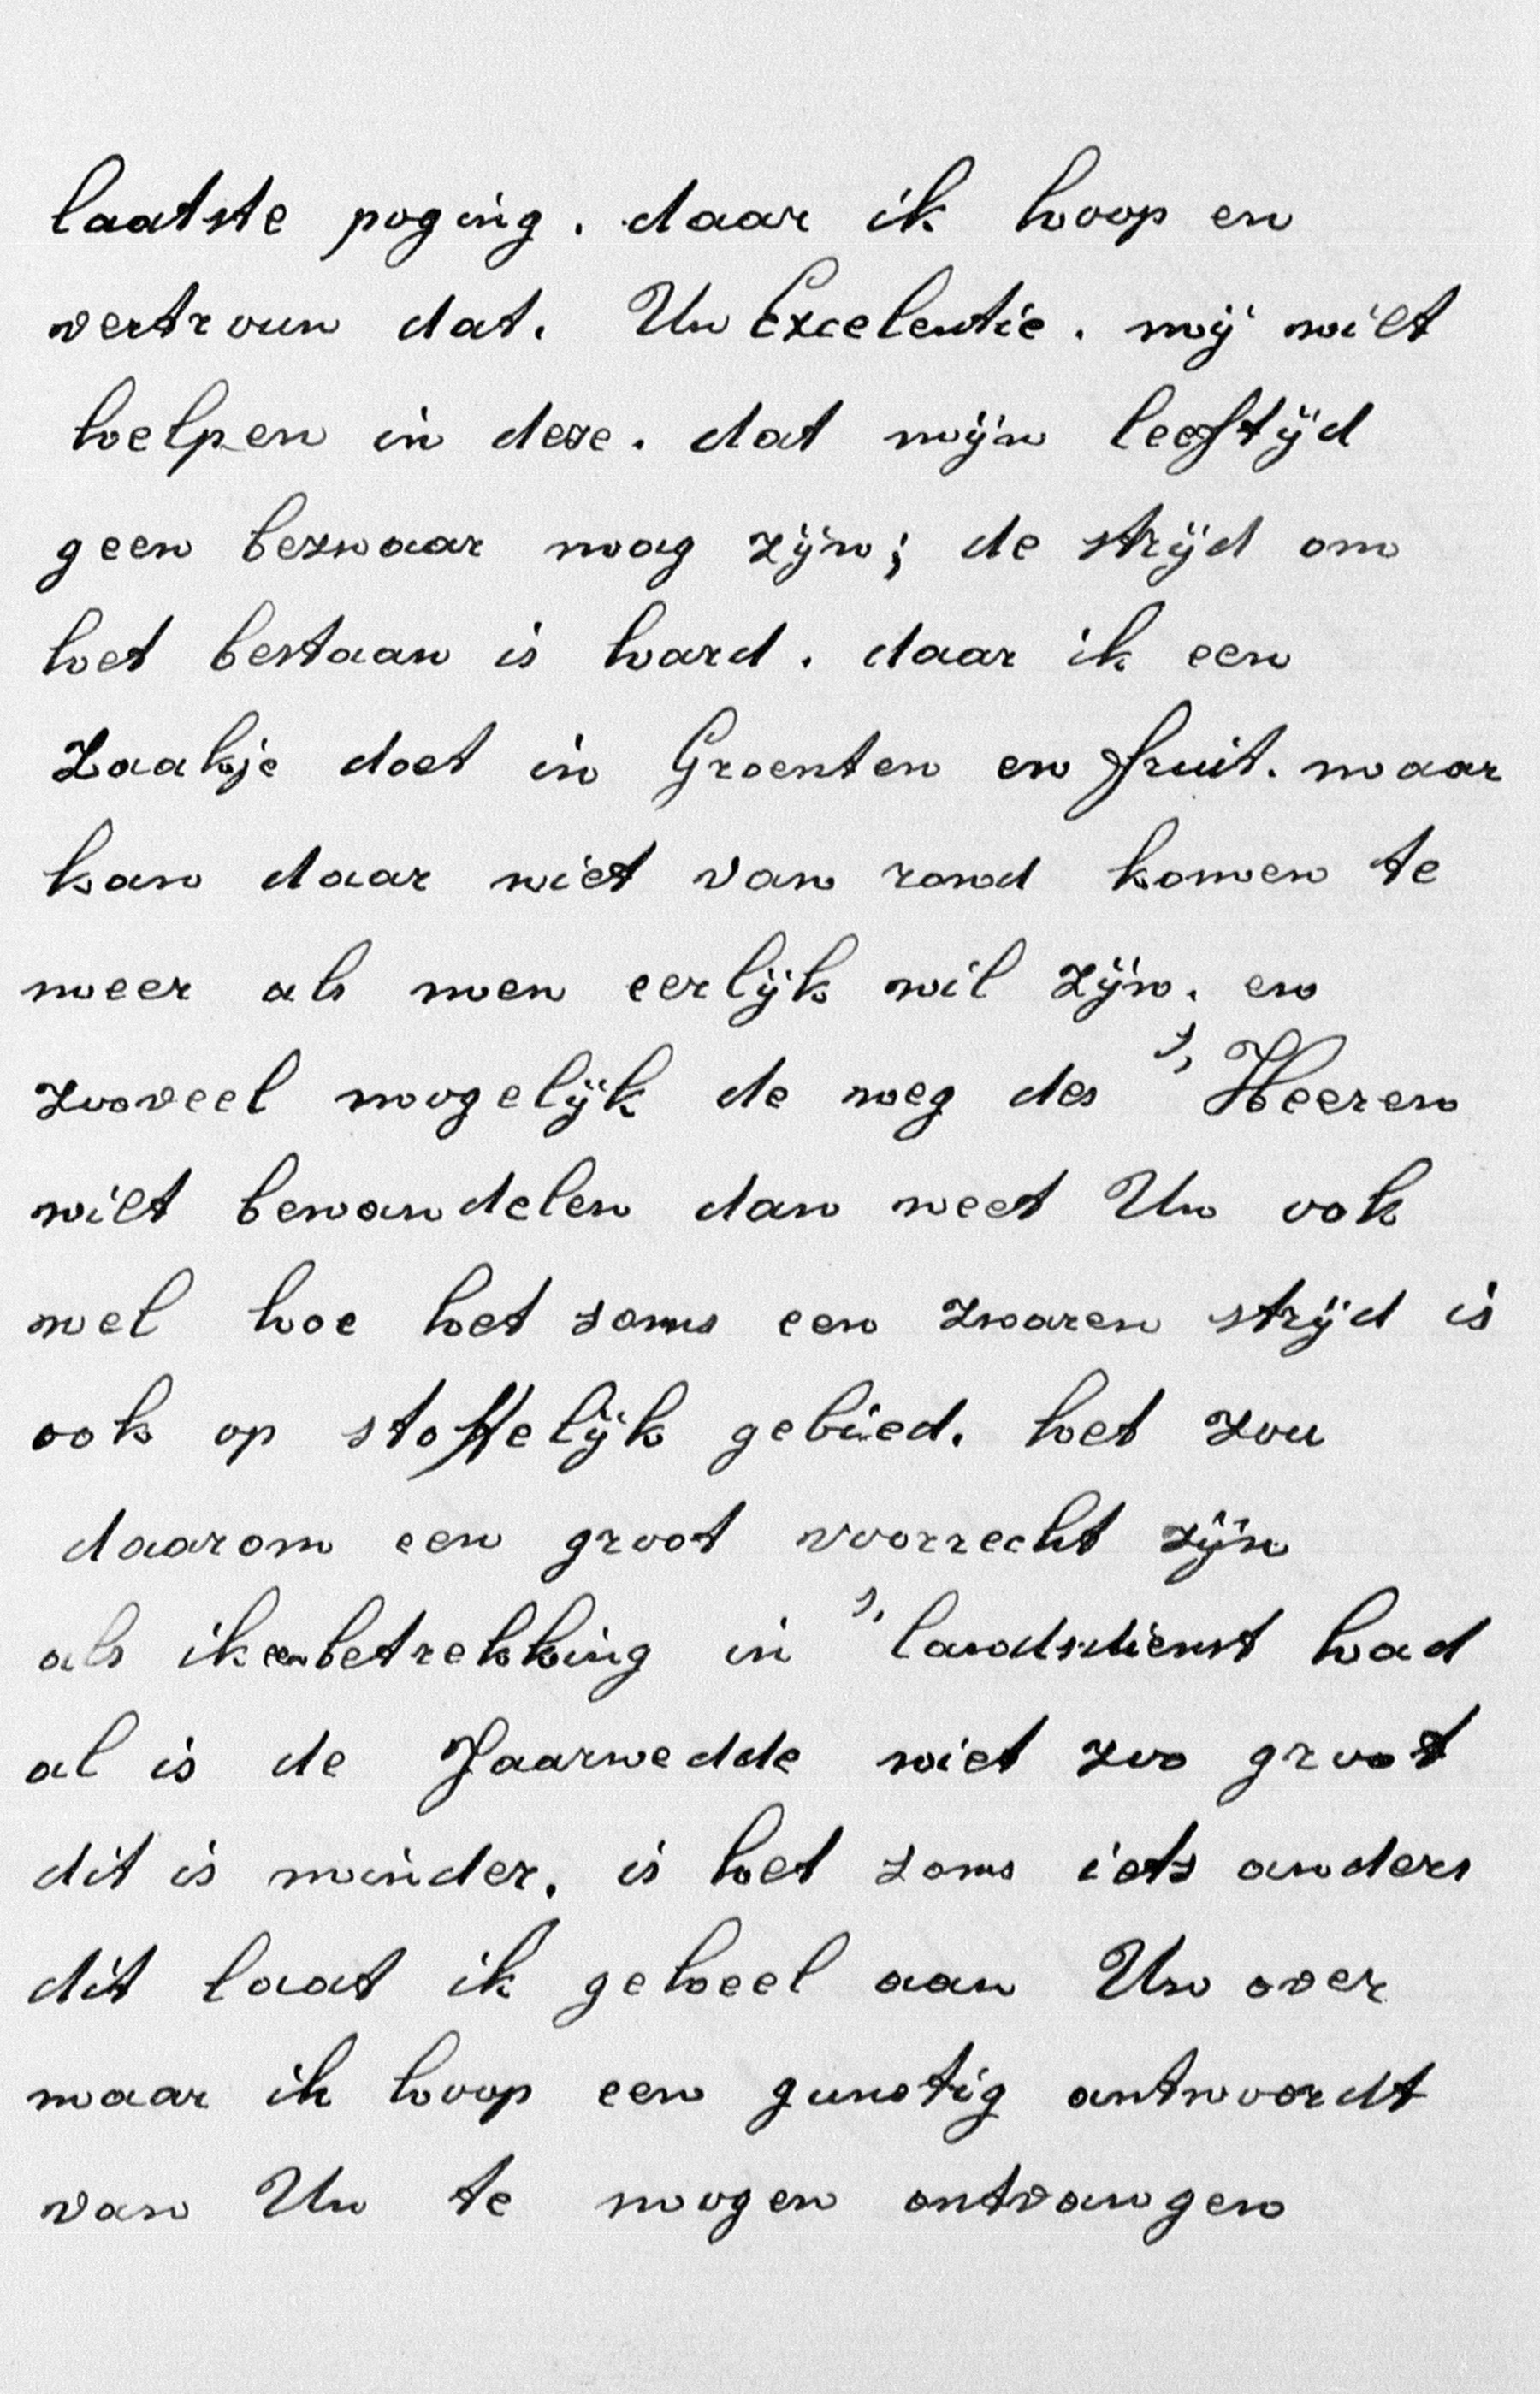 laatste poging. daar ik hoop en
vertroun dat. Uw Excelentie. mij wilt
helpen in deze. dat mijn leeftijd
geen bezwaar mag zijn; de strijd om
het bestaan is hard. daar ik een
Zaakje doet in Groenten en fruit. maar
kan daar niet van rond komen te
meer als men eerlijk wil zijn. en
zooveel mogelijk de weg des 's, Heeren
wilt bewandelen dan weet Uw ook
wel hoe het soms een zwaren strijd is
ook op stoffelijk gebied. het zou
daarom een groot voorrecht zijn
als ik een betrekking in 's, landsdienst had
al is de Jaarwedde niet zoo groot
dit is minder. is het soms iets anders
dit laat ik geheel aan Uw over
maar ik hoop een gunstig antwoordt
van Uw te mogen ontvangen